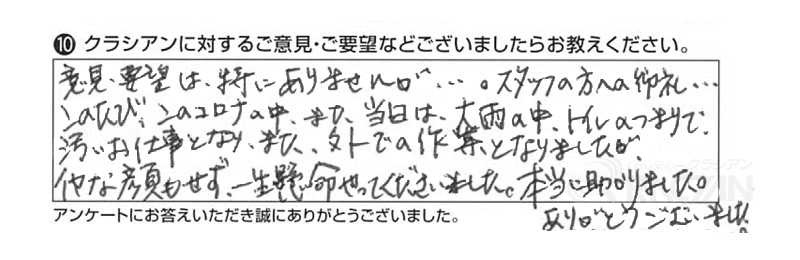 ⑩ クラシアンに対するご意見・ご要望などございましたらお教えください。
意見・要望は、特にありませんが…。スタッフの方への御礼…
このたび、このコロナの中、また、当日は、大雨の中、トイレのつまりで、
汚いお仕事となり、また、外での作業となりましたが
イヤな顔もせず、一生懸命やってくださいました。本当に助かりました。
ありがとうございました。
アンケートにお答えいただき誠にありがとうございました。